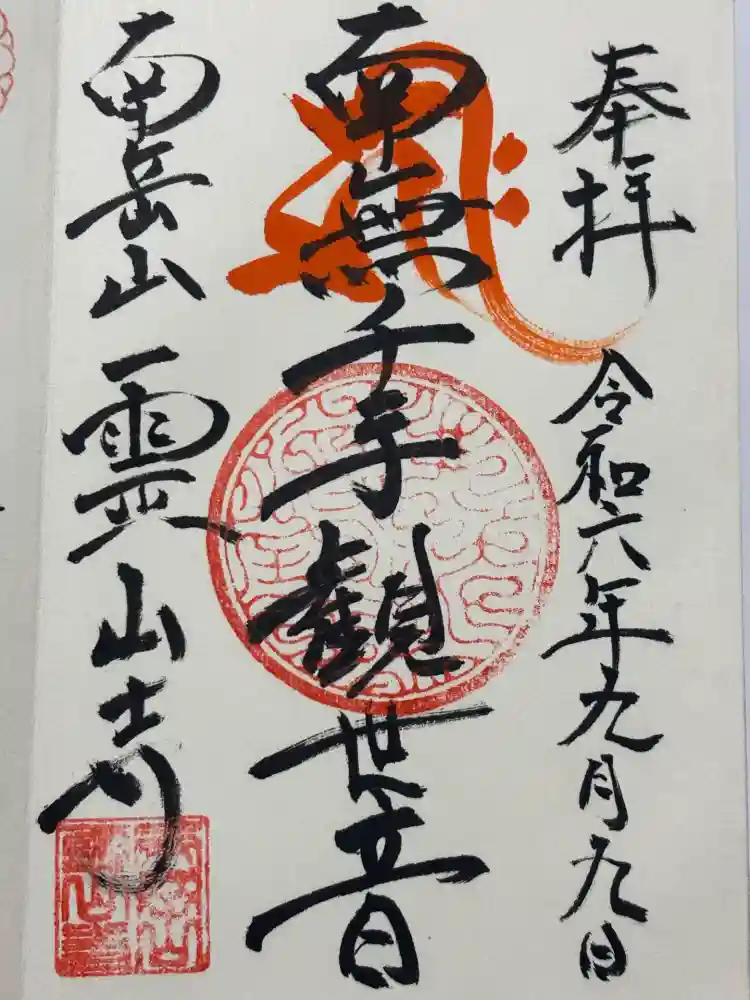 奉拝
令和六年九月九日
南無千手観世音
南岳山 霊山寺